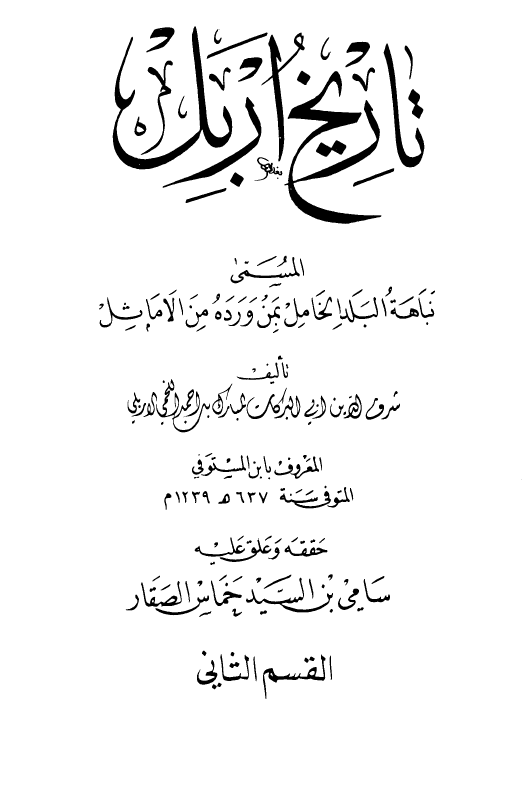 تاريخ اربل
المسمى
نباهة البلد الخامل بمن ورده من الاماثل
تأليف
شرف الدين ابي البركات المبارك بن احمد اللخمي الاربلي
المعروف بابن المستوفي
المتوفى سنة ٦٣٧ هـ ١٢٣٩ م
حققه وعلق عليه
سامي بن السيد خماس الصقار
القسم الثاني